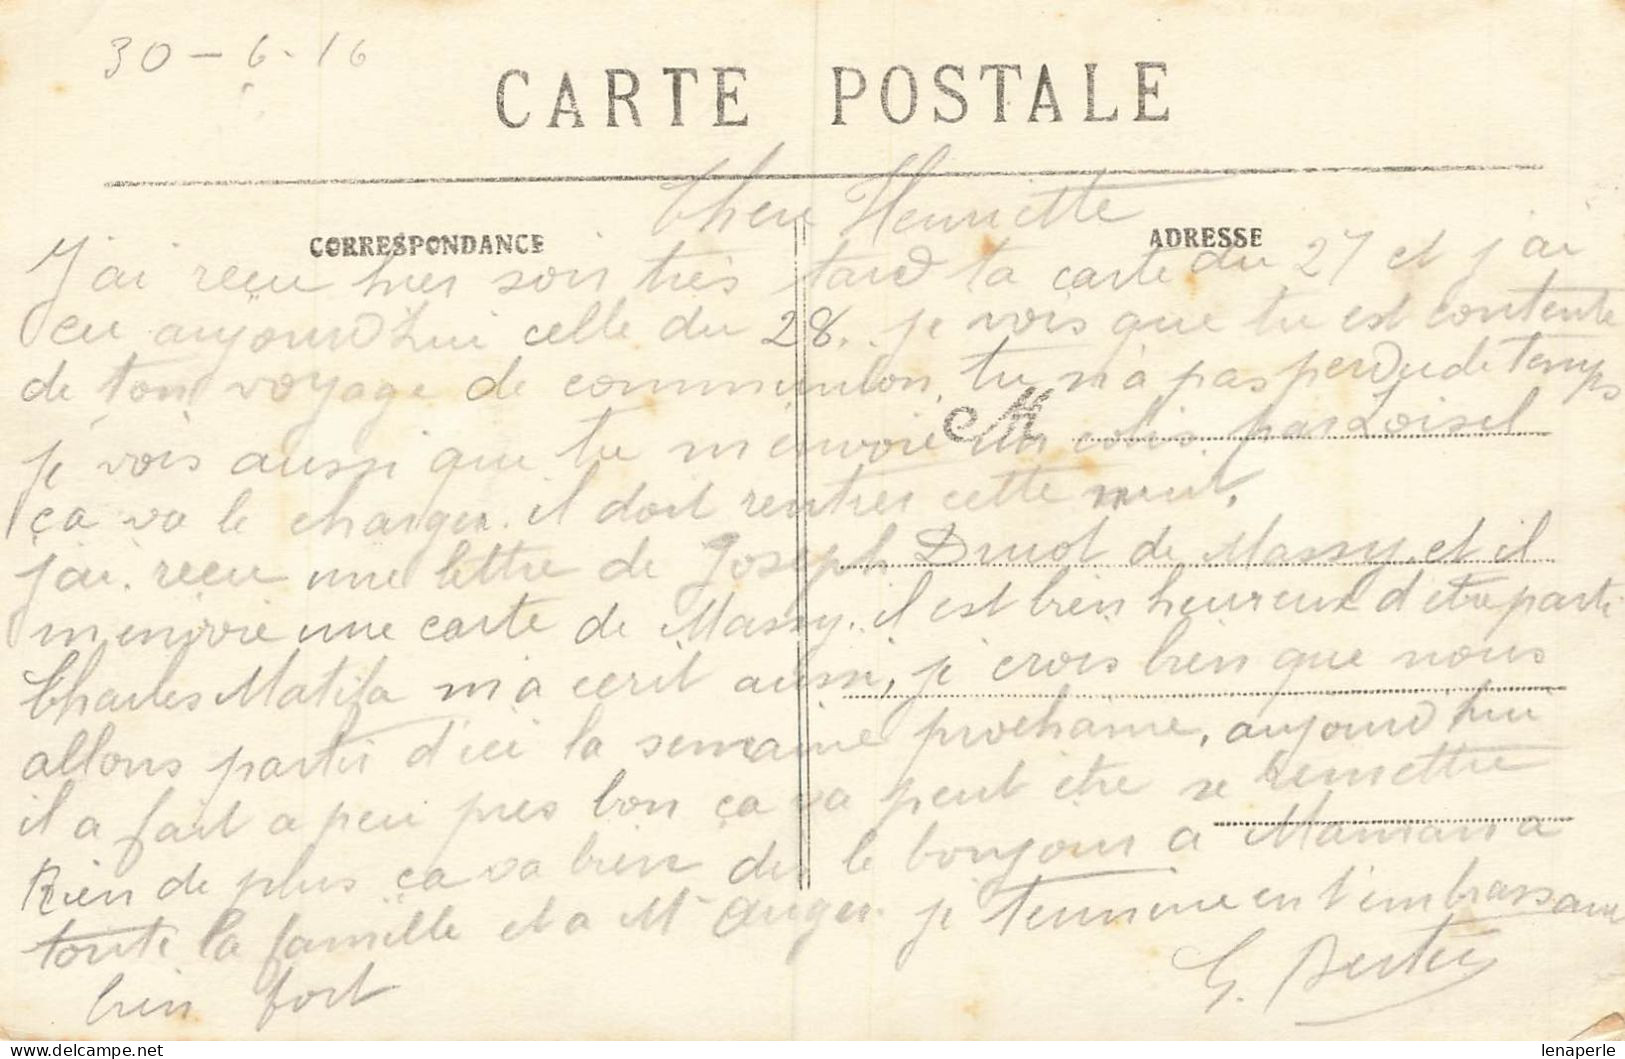 30-6-16
CARTE POSTALE
Chere Henriette
CORRESPONDANCE
ADRESSE
J'ai reçu hier soir très tard ta carte du 27 et j'ai
eu aujourd'hui celle du 28. je vois que tu est contente
de ton voyage de communion, tu n'a pas perdu de temps
M
je vois aussi que tu m'envoie un colis par Loisel
ça va le charger. il doit rentrer cette nuit.
j'ai reçu une lettre de Joseph Druot de Massy et il
m'envoie une carte de Massy. il est bien heureux d'etre parti
Charles Matifa m'a ecrit aussi, je crois bien que nous
allons partir d'ici la semaine prochaine, aujourd'hui
il a fait a peu pres bon ça va peut être se remettre
Rien de plus ça va bien dis le bonjour a Maman a
toute la famille et a Mr Auger je termine en t'embrassant
bien fort
G.
lenaperle